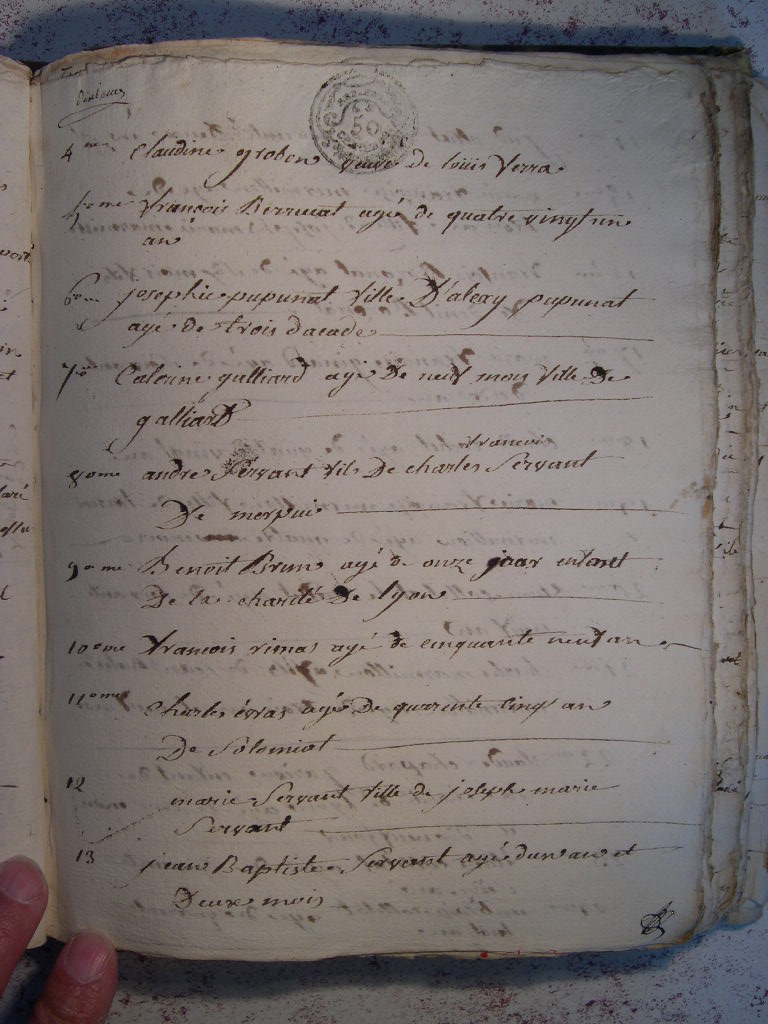 4me Claudine groben veuve de loüis Verra
5eme francois Berruiat agé de quatre vingt un
an
6em josephte pupunat fille D'alexy pupunat
agé de trois dacade
7me Caterine galliard agé De neuf mois fille De
galliard
francois
8eme andre Servant fils De charles Servant
De
9eme Benoit Brun agé de onze jour enfant
De la charité De lyon
10eme francois rimas agé de cinquante neuf an
11eme Charles agé De quarente cinq an
De Solomiat
12 marie Servant fille de joseph marie
Servant
13 jean Baptiste Servant agé dun an et
Deux mois